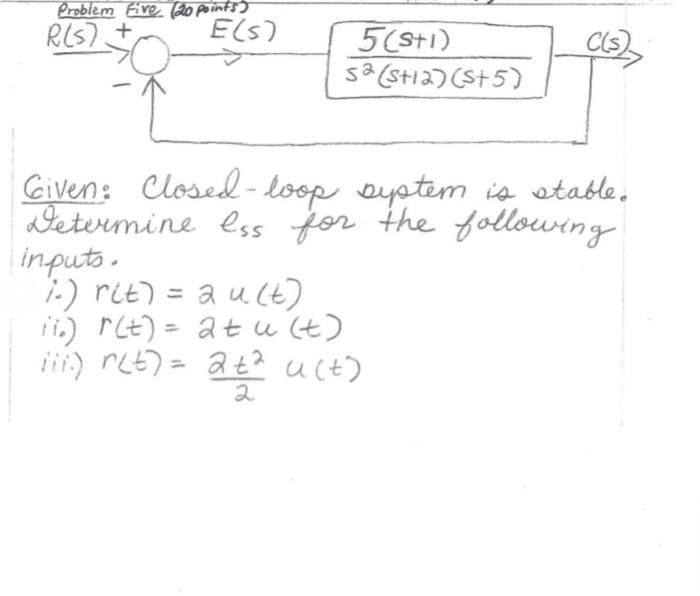 Problem Five (20 points)
R(s) + E(s) 5(s+1) C(s)
s²(s+12)(s+5)
−
Given: Closed-loop system is stable.
Determine ess for the following
inputs.
i.) r(t) = 2 u(t)
ii.) r(t) = 2t u(t)
iii.) r(t) = 2t² u(t)
2